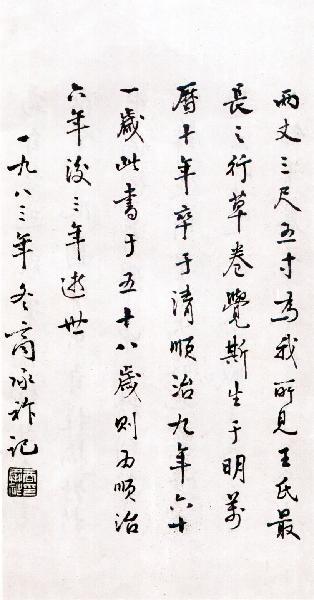 兩丈三尺五寸為我所見王氏最
長之行草卷覺斯生于明萬
曆十年卒于清順治九年六十
一歲此書于五十八歲則為順治
六年後三年逝世
一九八三年冬商承祚記